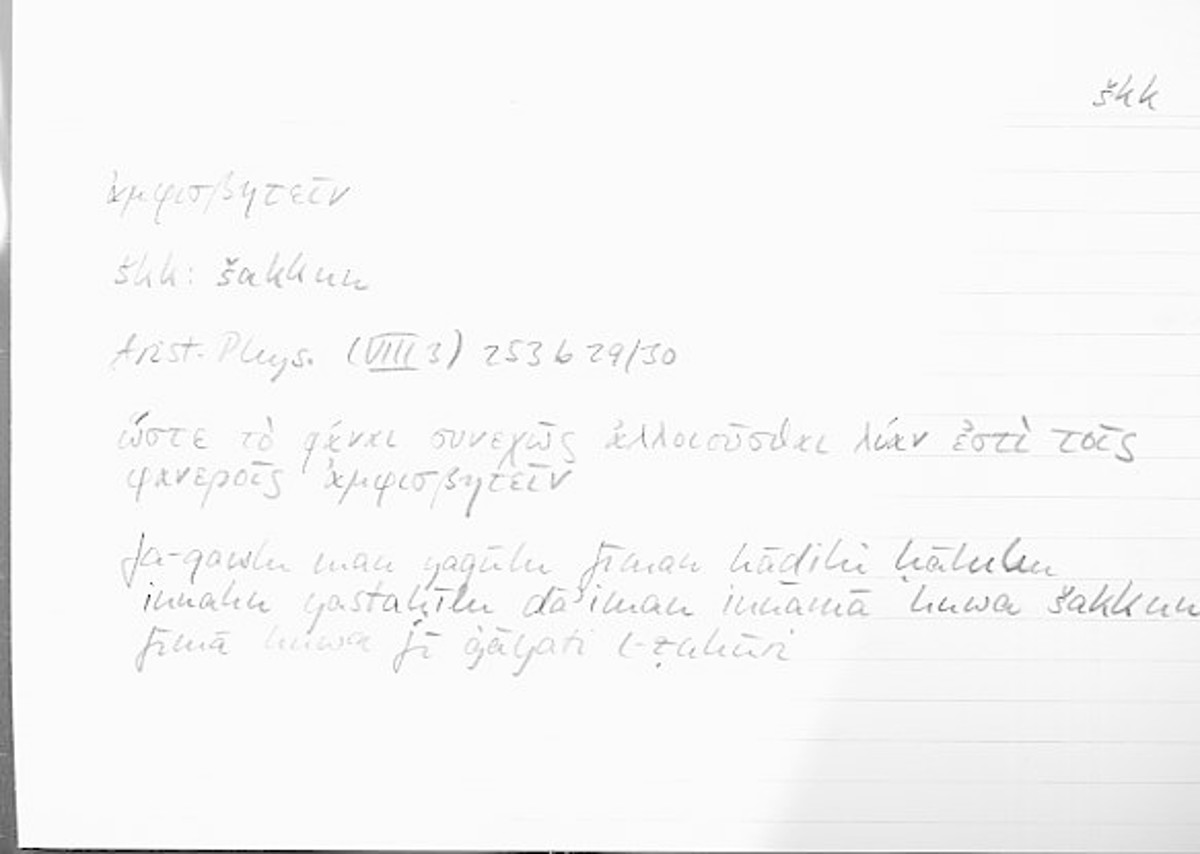 škk
ἀμφισβητεῖν
škk: šakkun
Arist. Phys. (VIII 3) 253 b 29/30
ὥστε τὸ φάναι συνεχῶς ἀλλοιοῦσθαι λίαν ἐστὶ τοῖς
φανεροῖς ἀμφισβητεῖν
fa-qawlu man yaqūlu fīman hāḏihī ḥāluhu
innahu yastaḥīlu dāʾiman innamā huwa šakkun
fīmā huwa fī ġāyati l-ẓuhūri